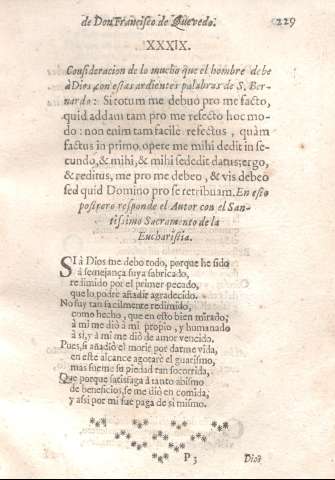 de Don Francisco de Quevedo. 229
XXXIX.
Consideracion de lo mucho que el hombre debe
à Dios, con estas ardientes palabras de S. Ber-
nardo: Si totum me debuo pro me facto,
quid addam tam pro me refecto hoc mo-
do: non enim tam facile refectus, quàm
factus in primo opere me mihi dedit in se-
cundo, & mihi, & mihi se dedit datus; ergo,
& reditus, me pro me debeo, & vis debeo
sed quid Domino pro se retribuam. En esto
postrero responde el Autor con el San-
tissimo Sacramento de la
Eucharistia.
SI à Dios me debo todo, porque he sido
à semejança suya fabricado,
redimido por el primer pecado,
que lo podrè añadir agradecido.
No fuy tan facilmente redimido,
como hecho, que en esto bien mirado;
à mi me diò à mi propio, y humanado
à si, y à mi me diò de amor vencido.
Pues, si añadiò el morir por darme vida,
en este alcance agotarè el guarismo,
mas fueme su piedad tan socorrida,
Que porque satisfaga à tanto abismo
de beneficios, se me diò en comida,
y assi por mi fue paga de si mismo.
P 3 Dios